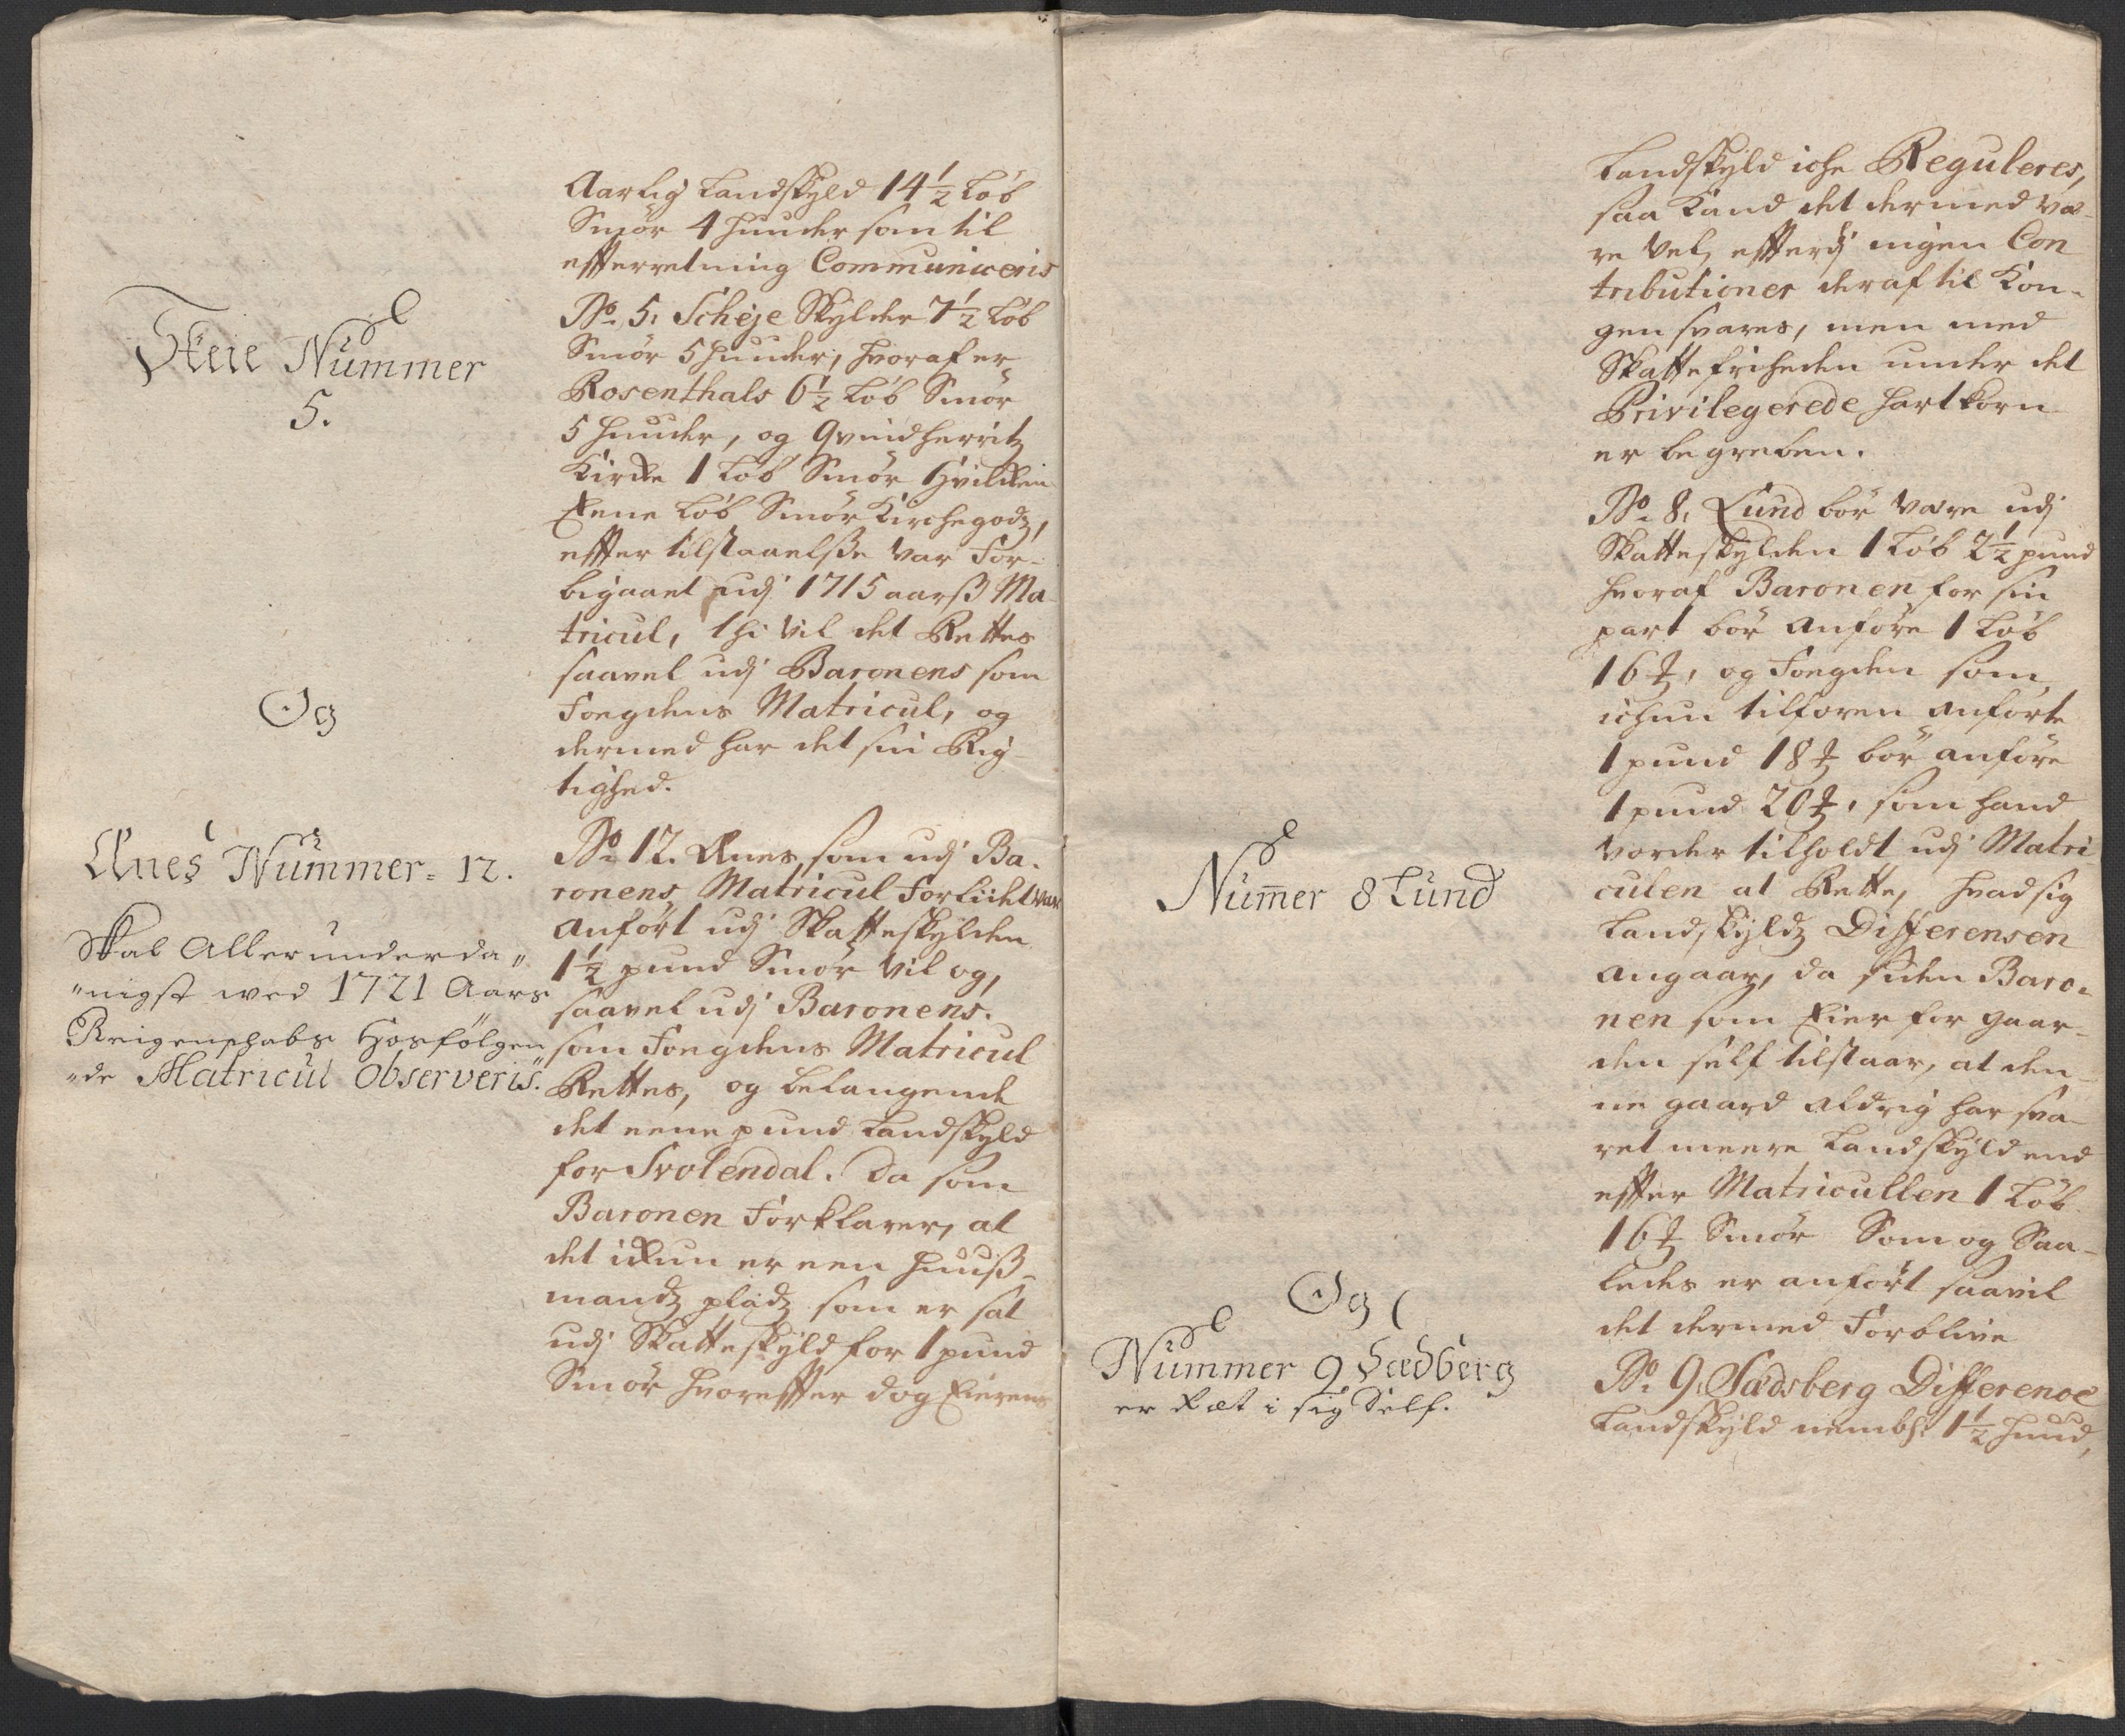 Skeie Nummer
5.
Og
Ænes Nummer = 12.
Skal Allerunderda„
„nigst wed 1721 Aars
Reigenskabs Hosfølgen
„de Matricul Observeris.
Aarlig Landskyld 14½ Løb
Smør 4 huuder som til
effterretning Communiceris
No. 5. Scheje Skylder 7½ Løb
Smør 5 huuder, hvoraf er
Rosenthals 6½ Løb Smør
5 huuder, og Qvindherritz
Kirke 1 Løb Smør Hvilken
Eene Løb Smør Kirchegodz,
effter tilstaaelße var For-
bigaaet udj 1715 aarß Ma-
tricul, thi vil det Rettes
saavel udj Baronens som
Fougdens Matricul, og
dermed har det sin Rig-
tighed.
No. 12. Ænes, som udj Ba-
ronens Matricul Forliidet var
Anført udj Skatteskylden
1½ pund Smør vil og,
saavel udj Baronens.
som Fougdens Matricul
Rettes, og belangende
det eene pund Landskyld
for Svolendal. Da som
Baronen Forklarer, at
det ikun er een huuß-
mandz pladz som er sat
udj Skatteskyld for 1 pund
Smør hvoreffter dog Eierens
Num̄er 8 Lund
Og
Nummer 9 Sædberg
er Ræt i sig Self.
Landskyld iche Reguleres,
saa kand det dermed væ-
re vel, efferdj ingen Con
tributioner deraf til Kon-
gen svares, men med
Skattefriheden under det
Privilegerede hartkorn
er begreben.
No. 8. Lund bør være udj
Skatteskylden 1 Løb 2½ pund
hvoraf Baronen for sin
part bør anføre 1 Løb
16 ℔, og Fougden som
ichun tilforen anførte
1 pund 18 ℔ bør anføre
1 pund 20 ℔, som hand
vorder tilholdt udj Matri
culen at Rette, hvad sig
Landskyldz Differensen
angaar, da siden Baro-
nen som Eier for gaar-
den self tilstaar, at den-
ne gaard aldrig har sva-
ret meere Landskyld end
effter Matricullen 1 Løb
16 ℔ Smør Som og Saa-
ledes er anført saa vil
det dermed Forblive
No. 9. Sædsberg Difference
Landskyld nembl: 1½ huud,